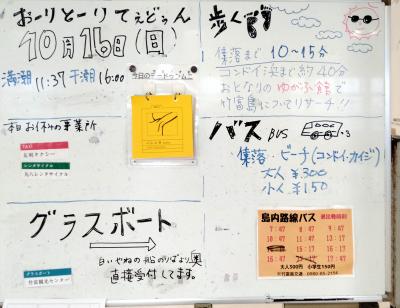 おーりとーりてぇどぅん
10月16日(日)
満潮 11:37 干潮 16:00
本日お休みの事業所
TAXI
友利タクシー
レンタサイクル
丸八レンタサイクル
グラスボート
白いやねの船のりばより奥
直接受付してます。
グラスボート
竹富観光センター
歩くです
集落まで 10〜15分
コンドイ浜まで約40分
おとなりのゆがふ館で
竹富島についてリサーチ!!
バス BUS
集落・ビーチ(コンドイ・カイジ)
大人 ¥300
小人 ¥150
島内路線バス
7:47 8:47 9:47
10:47 11:47 13:17
14:17 15:17 16:17
16:47 17:17
大人300円 小学生150円